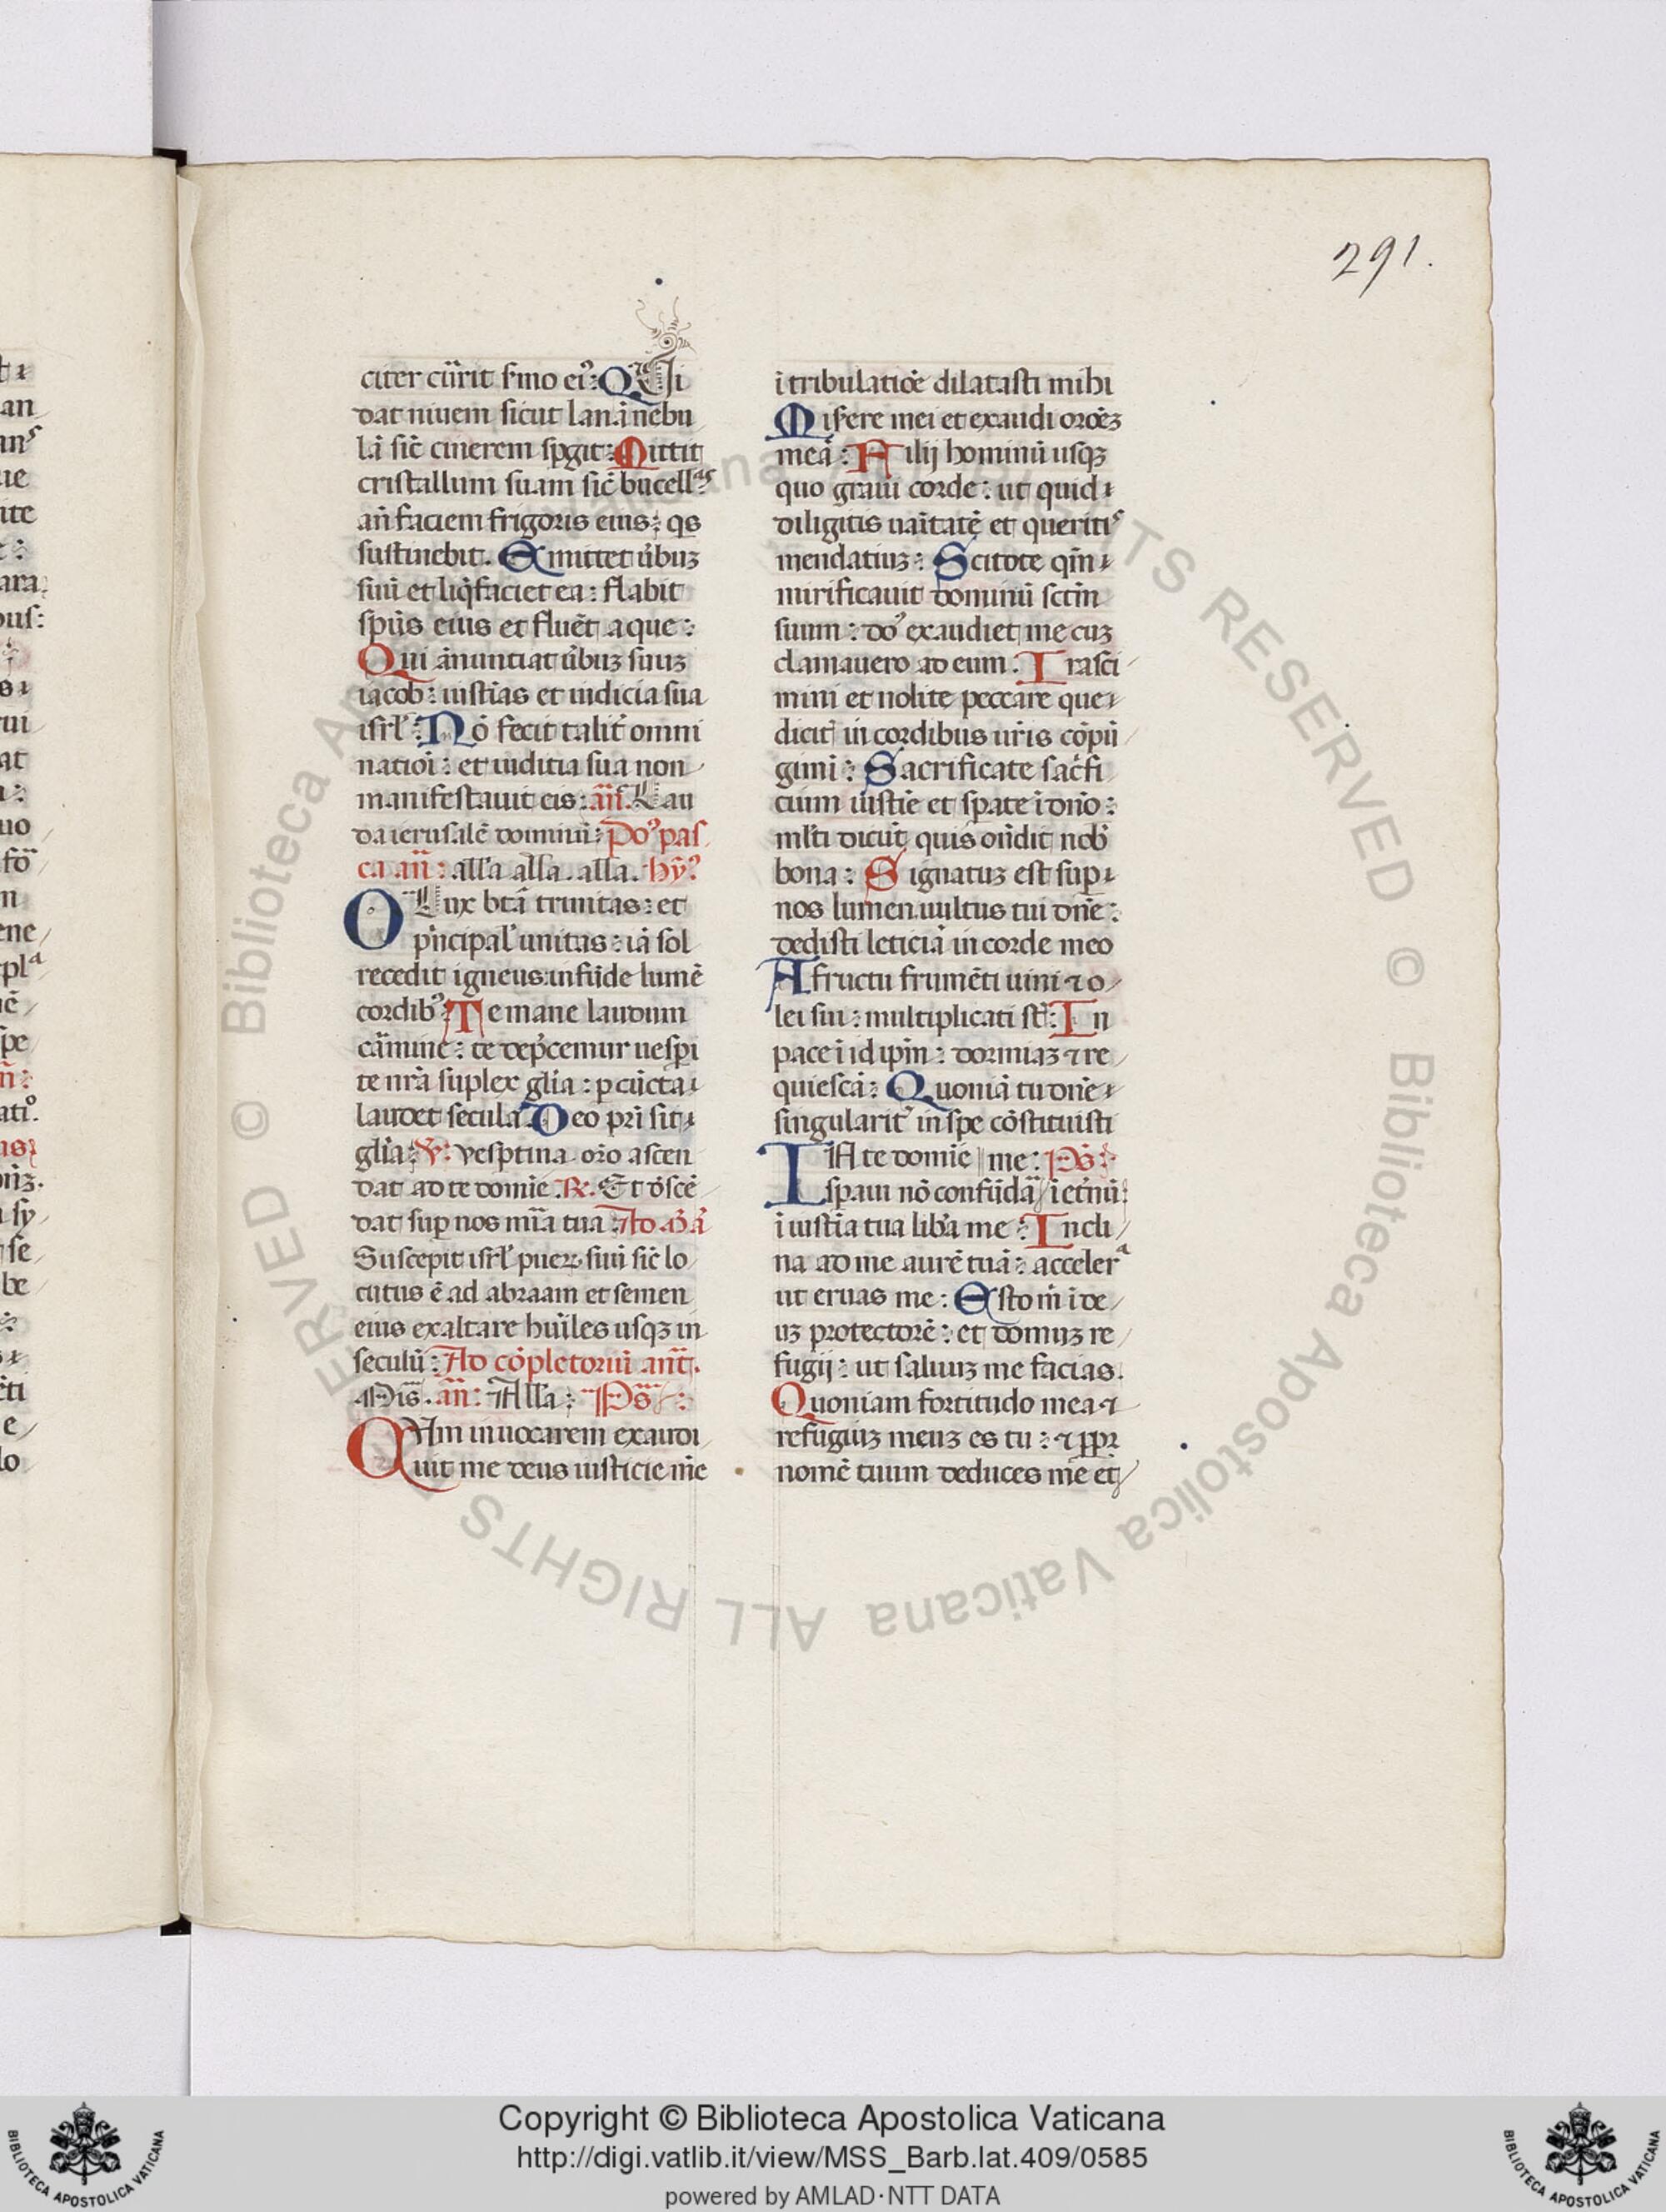 291.
citer cur̄it s̓mo ei⁹: Qui
dat niuem sicut lanā nebu
lā sic̄ cinerem sp̄git: Mittit
cristallum suam sic̄ bucellas
an̄ faciem frigoris eius: qs
sustinebit. Emittet u̓buʒ
suū et liq̄faciet ea: flabit
spūs eius et fluēt aque:
Qui ānunciat u̓buʒ suuʒ
iacob: iustīas et iudicia sua
isrl̓: Nō fecit talit̓ omni
natiōi: et iuditia sua non
manifestauit eis: an̄. Lau
da ierusalē dominū: Po⁹ pas
ca an̄: all̓a all̓a. all̓a. hȳ⁹
O Lux btā trinitas: et
p̓ncipal̓ unitas: iā sol
recedit igneus: infūde lumē
cordib⁹: Te mane laudum
cāmine: te dep̓cemur uesp̄i
te nr̄a suplex gl̓ia: p cūcta
laudet secula: Deo pr̄i sit
gl̓ia: ℣. vesp̄tina or̄o ascen
dat ad te domīe. ℟. Et d̓scē
dat sup̱ nos mīa tua: Ad m̄ ā
Suscepit isrl̓ pueꝝ suū sic̄ lo
cutus ē ad abraam et semen
eius exaltare hūiles usqʒ in
seculū: Ad cōpletoriū ant̄.
Pīs. an̄: All̓a: Ps̄:
QVm inuocarem exaudi
uit me deus iusticie mē
ī tribulatiōe dilatasti mihi
Mis̓ere mei et exaudi oroēʒ
meā: Filij hominū usqʒ
quo graui corde: ut quid
diligitis uaītatē et queritis
mendatiuʒ: Scitote qm̄
mirificauit dominū sctm̄
suum: do⁹ exaudiet me cuʒ
clamauero ad eum. Irasci
mini et nolite peccare que
dicit̓ in cordibus ur̄is cōpū
gimī: Sacrificate sac̓fi
cium iustīe et sp̄ate ī dn̄o:
ml̓ti dicūt quis on̄dit nob̓
bona: Signatuʒ est sup̱
nos lumen uultus tui dn̄e:
dedisti leticiā in corde meo
A fructu frumēti uini ⁊ o
lei sui: multiplicati st̄: In
pace ī id ip̄m: dormiaʒ ⁊ re
quiescā: Quoniā tu dn̄e
singularit̓ in spe cōstituisti
IN te domīe me: Ps̄:
sp̄aui nō confūdā ī et̓nū:
ī iustīa tua lib̓a me: Incli
na ad me aurē tuā: accelera
ut eruas me: Esto m̄ ī de
uʒ protectorē: et domuʒ re
fugij: ut saluuʒ me facias.
Quoniam fortitudo mea ⁊
refugiuʒ meuʒ es tu: ⁊ pp̱r
nomē tuum deduces me et
© Biblioteca Apostolica Vaticana ALL RIGHTS RESERVED
Copyright © Biblioteca Apostolica Vaticana
http://digi.vatlib.it/view/MSS_Barb.lat.409/0585
powered by AMLAD·NTT DATA
BIBLIOTECA APOSTOLICA VATICANA
BIBLIOTECA APOSTOLICA VATICANA